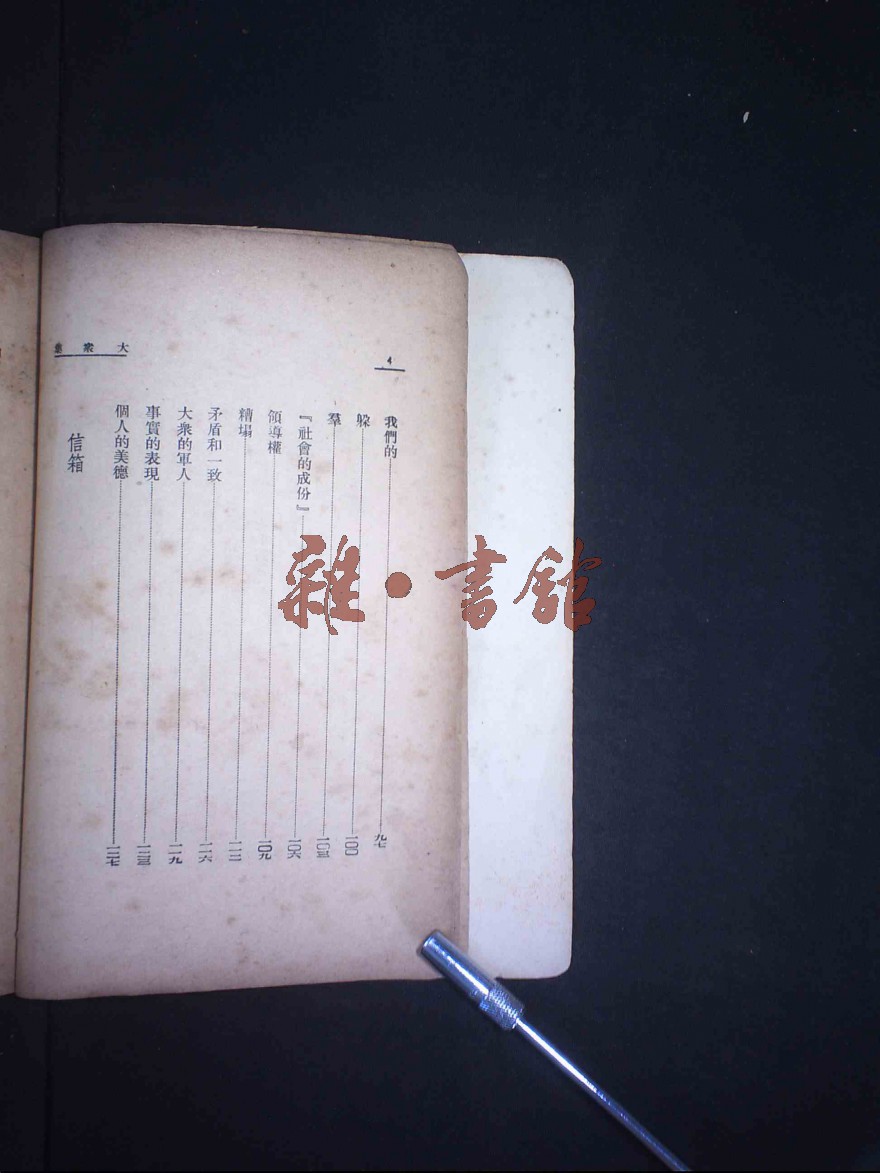 大衆集
4
我們的 九七
躲 一〇〇
羣 一〇三
『社會的成份』 一〇六
領導權 一〇九
糟塌 一一二
矛盾和一致 一一六
大衆的軍人 一一九
事實的表現 一二三
個人的美德 一二七
信箱
雜·書館